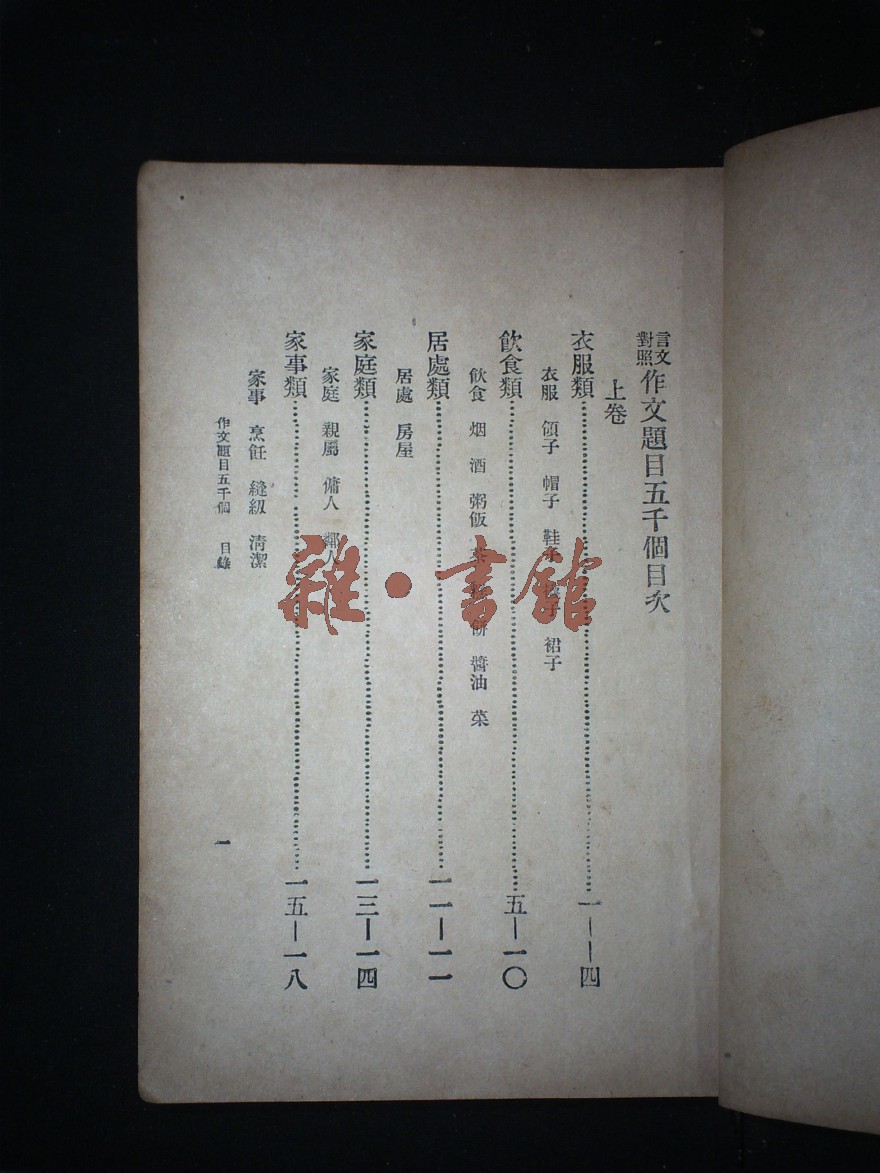 言文對照作文題目五千個目次
上卷
衣服類……一—四
衣服 領子 帽子 鞋子 子 裙子
飲食類……五—一〇
飲食 烟 酒 粥飯 茶 餅 醬油 菜
居處類……一一—一一
居處 房屋
家庭類……一三—一四
家庭 親屬 傭人 鄰人
家事類……一五—一八
家事 烹飪 縫級 清潔
作文題目五千個 目錄 一
雜·書館